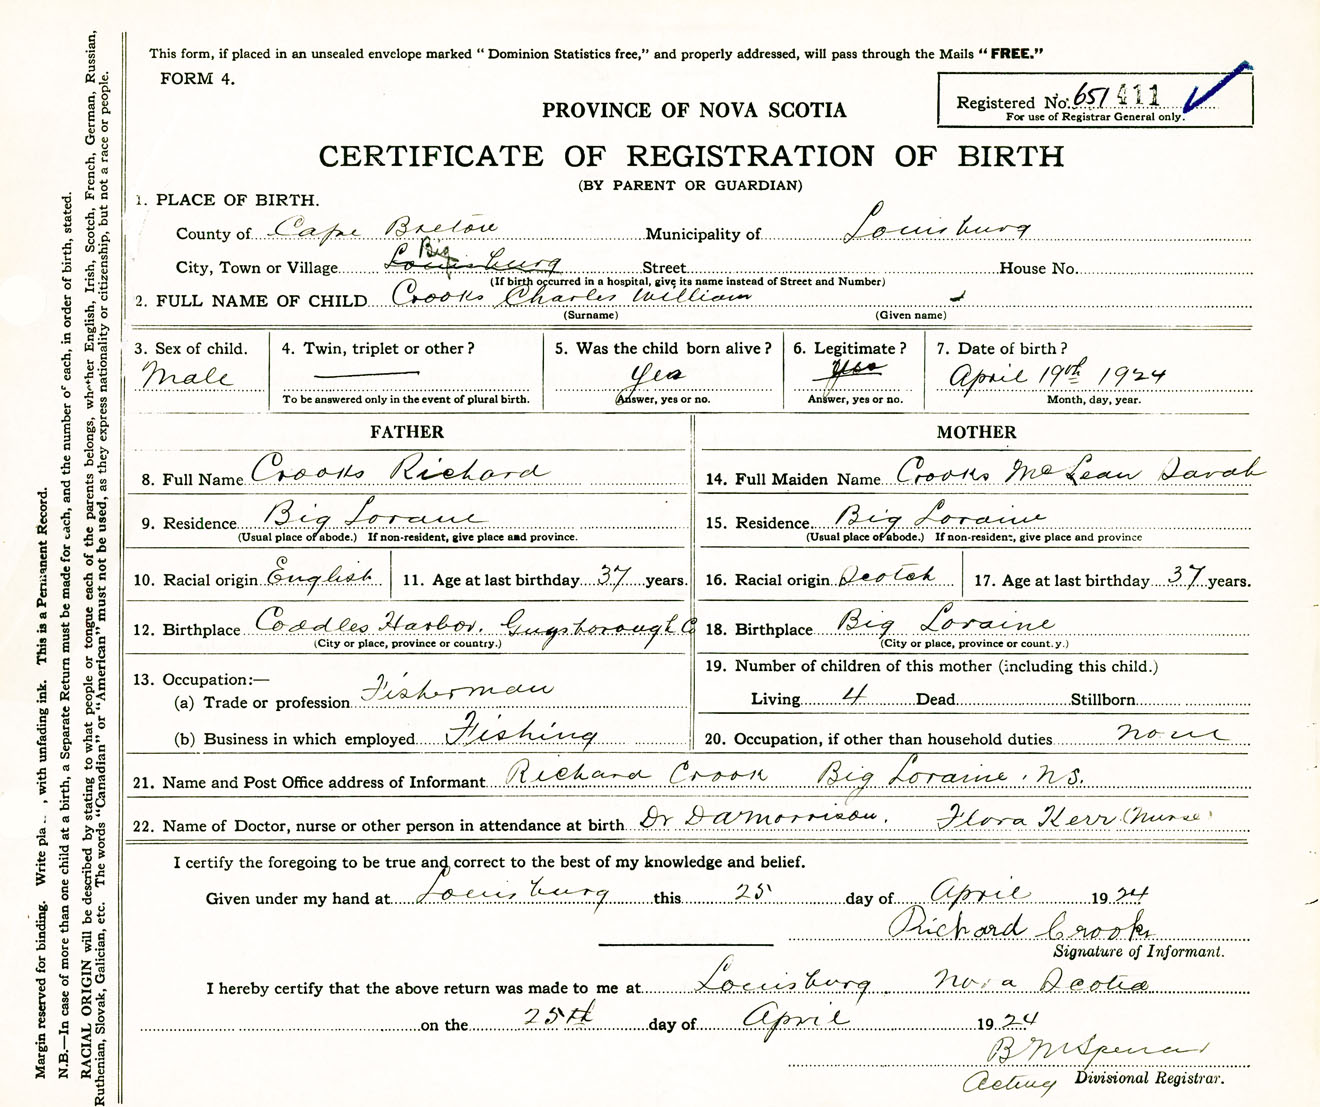 This form, if placed in an unsealed envelope marked “ Dominion Statistics free,” and properly addressed, will pass through the Mails “ FREE.”
FORM 4.
Registered No. 651 411
For use of Registrar General only.
PROVINCE OF NOVA SCOTIA
CERTIFICATE OF REGISTRATION OF BIRTH
(BY PARENT OR GUARDIAN)
1. PLACE OF BIRTH.
County of Cape Breton Municipality of Louisburg
Big
City, Town or Village Louisburg Street House No.
(If birth occurred in a hospital, give its name instead of Street and Number)
2. FULL NAME OF CHILD Crooks Charles William
(Surname) (Given name)
3. Sex of child. 4. Twin, triplet or other? 5. Was the child born alive? 6. Legitimate? 7. Date of birth?
Male Yes Yes April 19th 1924
To be answered only in the event of plural birth. Answer, yes or no. Answer, yes or no. Month, day, year.
FATHER MOTHER
8. Full Name Crooks Richard 14. Full Maiden Name Crooks McLean Sarah
9. Residence Big Lorane 15. Residence. Big Loraine
(Usual place of abode.) If non-resident, give place and province. (Usual place of abode.) If non-resident, give place and province
10. Racial origin English 11. Age at last birthday 37 years. 16. Racial origin Scotch 17. Age at last birthday 37 years.
12. Birthplace Coddles Harbor. Guysborough C 18. Birthplace Big Loraine
(City or place, province or country.) (City or place, province or count.y.)
13. Occupation:— 19. Number of children of this mother (including this child.)
(a) Trade or profession Fisherman Living 4 Dead Stillborn
(b) Business in which employed Fishing 20. Occupation, if other than household duties none
21. Name and Post Office address of Informant Richard Crook Big Loraine. N.S.
22. Name of Doctor, nurse or other person in attendance at birth Dr DAMorrison. Flora Kerr (Nurse
I certify the foregoing to be true and correct to the best of my knowledge and belief.
Given under my hand at Louisburg this 25 day of April 1924
Richard Crooks
Signature of Informant.
I hereby certify that the above return was made to me at Louisburg Nova Scotia
on the 25th day of April 1924
Acting Divisional Registrar.
Margin reserved for binding. Write pla , with unfading ink. This is a Permanent Record.
N.B.—In case of more than one child at a birth, a Separate Return must be made for each, and the number of each, in order of birth, stated.
RACIAL ORIGIN will be described by stating to what people or tongue each of the parents belongs, whether English, Irish, Scotch, French, German, Russian,
Ruthenian, Slovak, Galician, etc. The words “Canadian” or “American” must not be used, as they express nationality or citizenship, but not a race or people.